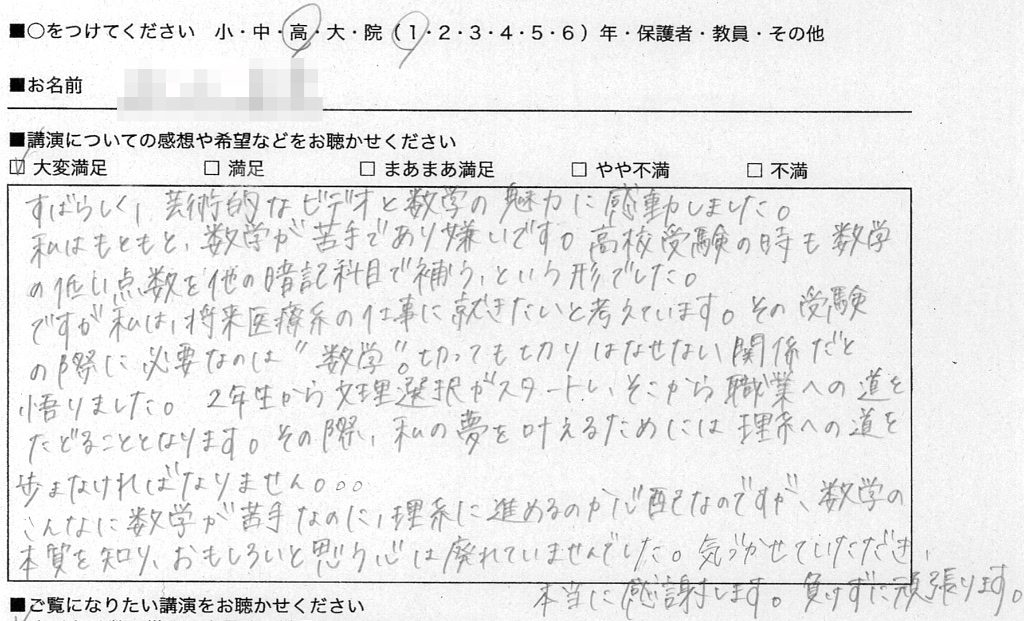 ■○をつけてください 小・中・高・大・院（1・2・3・4・5・6）年・保護者・教員・その他
■お名前
■講演についての感想や希望などをお聴かせください
☑ 大変満足 □ 満足 □ まあまあ満足 □ やや不満 □ 不満
すばらしく、芸術的なビデオと数学の魅力に感動しました。
私はもともと、数学が苦手であり嫌いです。高校受験の時も数学
の低い点数を他の暗記科目で補う、という形でした。
ですが私は、将来医療系の仕事に就きたいと考えています。その受験
の際に必要なのは"数学"。切っても切りはなせない関係だと
悟りました。2年生から文理選択がスタートし、そこから職業への道を
たどることとなります。その際、私の夢を叶えるためには理系への道を
歩まなければなりません。。。
こんなに数学が苦手なのに、理系に進めるのか心配なのですが、数学の
本質を知り、おもしろいと思う心は廃れていませんでした。気づかせていただき、
本当に感謝します。負けずに頑張ります。
■ご覧になりたい講演をお聴かせください